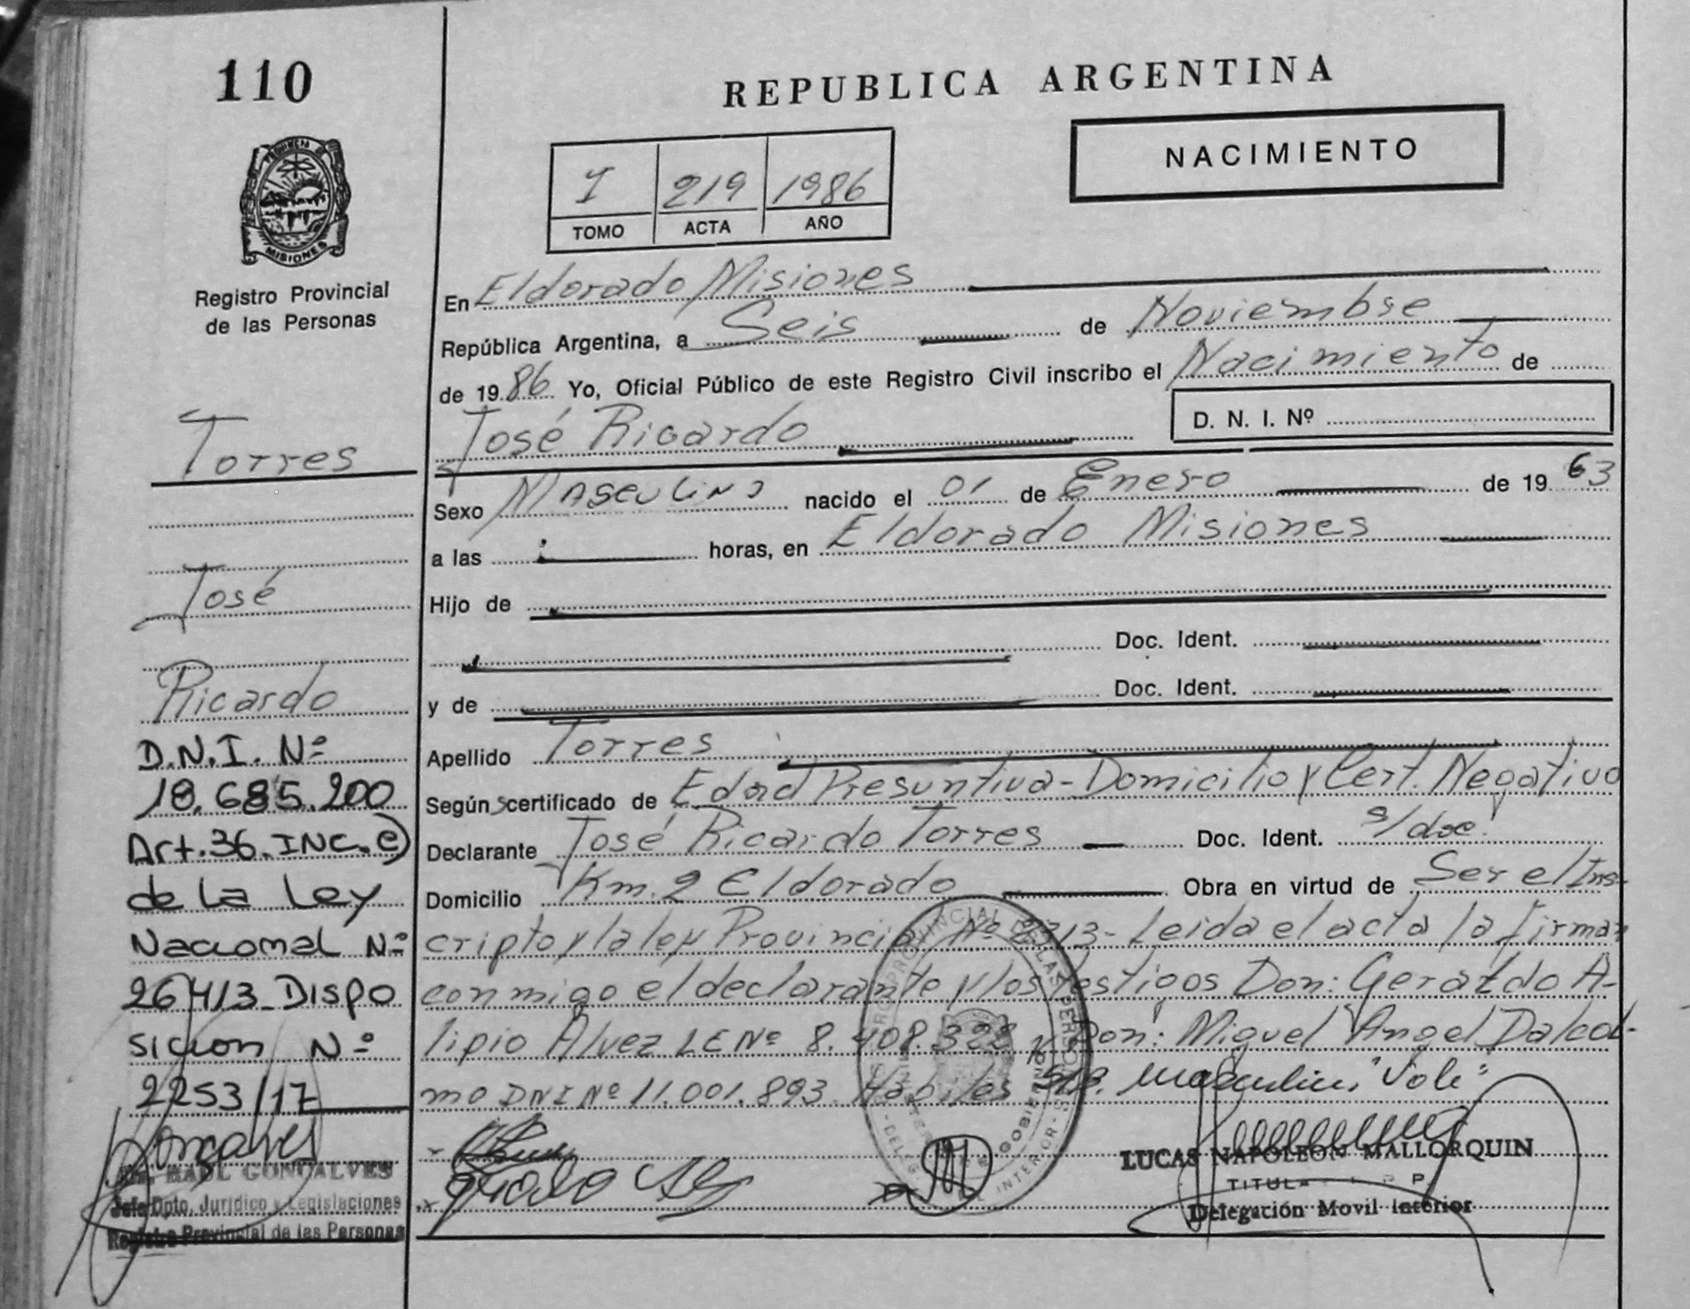 110
REPUBLICA ARGENTINA
NACIMIENTO
I 219 1986
TOMO ACTA AÑO
PROVINCIA DE
MISIONES
Registro Provincial
de las Personas
En Eldorado Misiones
República Argentina, a Seis de Noviembre
de 1986 Yo, Oficial Público de este Registro Civil inscribo el Nacimiento de
José Ricardo
D. N. I. Nº
Sexo Masculino nacido el 01 de Enero de 1963
a las horas, en Eldorado Misiones
Hijo de
Doc. Ident.
y de Doc. Ident.
Apellido Torres
Según certificado de Edad Presuntiva - Domicilio y Cert. Negativo
Declarante José Ricardo Torres Doc. Ident. s/doc.
Domicilio Km. 2 Eldorado Obra en virtud de Ser el Ins-
cripto y la ley Provincial Nº 2713 - Leida el acta la firman
conmigo el declarante y los testigos Don: Geraldo A-
lipio Alvez LE Nº 8.408.322 y Don: Miguel Angel Dalcol-
mo DNI Nº 11.001.893. Habiles S/B. Masculino "Vale"
LUCAS NAPOLEON MALLORQUIN
TITULAR
Delegación Movil Interior
Torres
José
Ricardo
D.N.I. Nº
18.685.200
Art. 36. INC. e)
de la Ley
Nacional Nº
26413 - Dispo
sicion Nº
2253/17
RAUL GONCALVES
Jefe Dpto. Jurídico y Legislaciones
Registro Provincial de las Personas